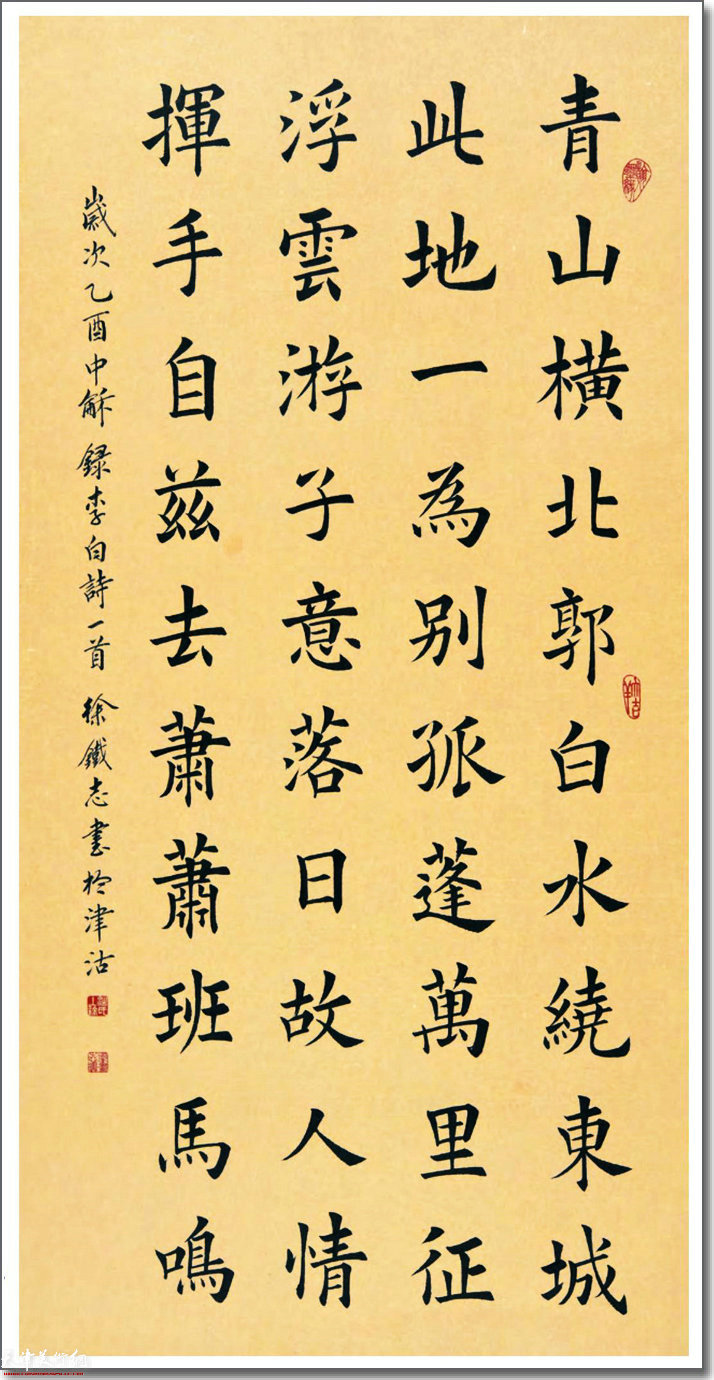 青山橫北郭白水繞東城
此地一為别孤蓬萬里征
浮雲游子意落日故人情
揮手自茲去蕭蕭班馬鳴
歲次乙酉中龢錄李白詩一首徐鐵志書於津沽